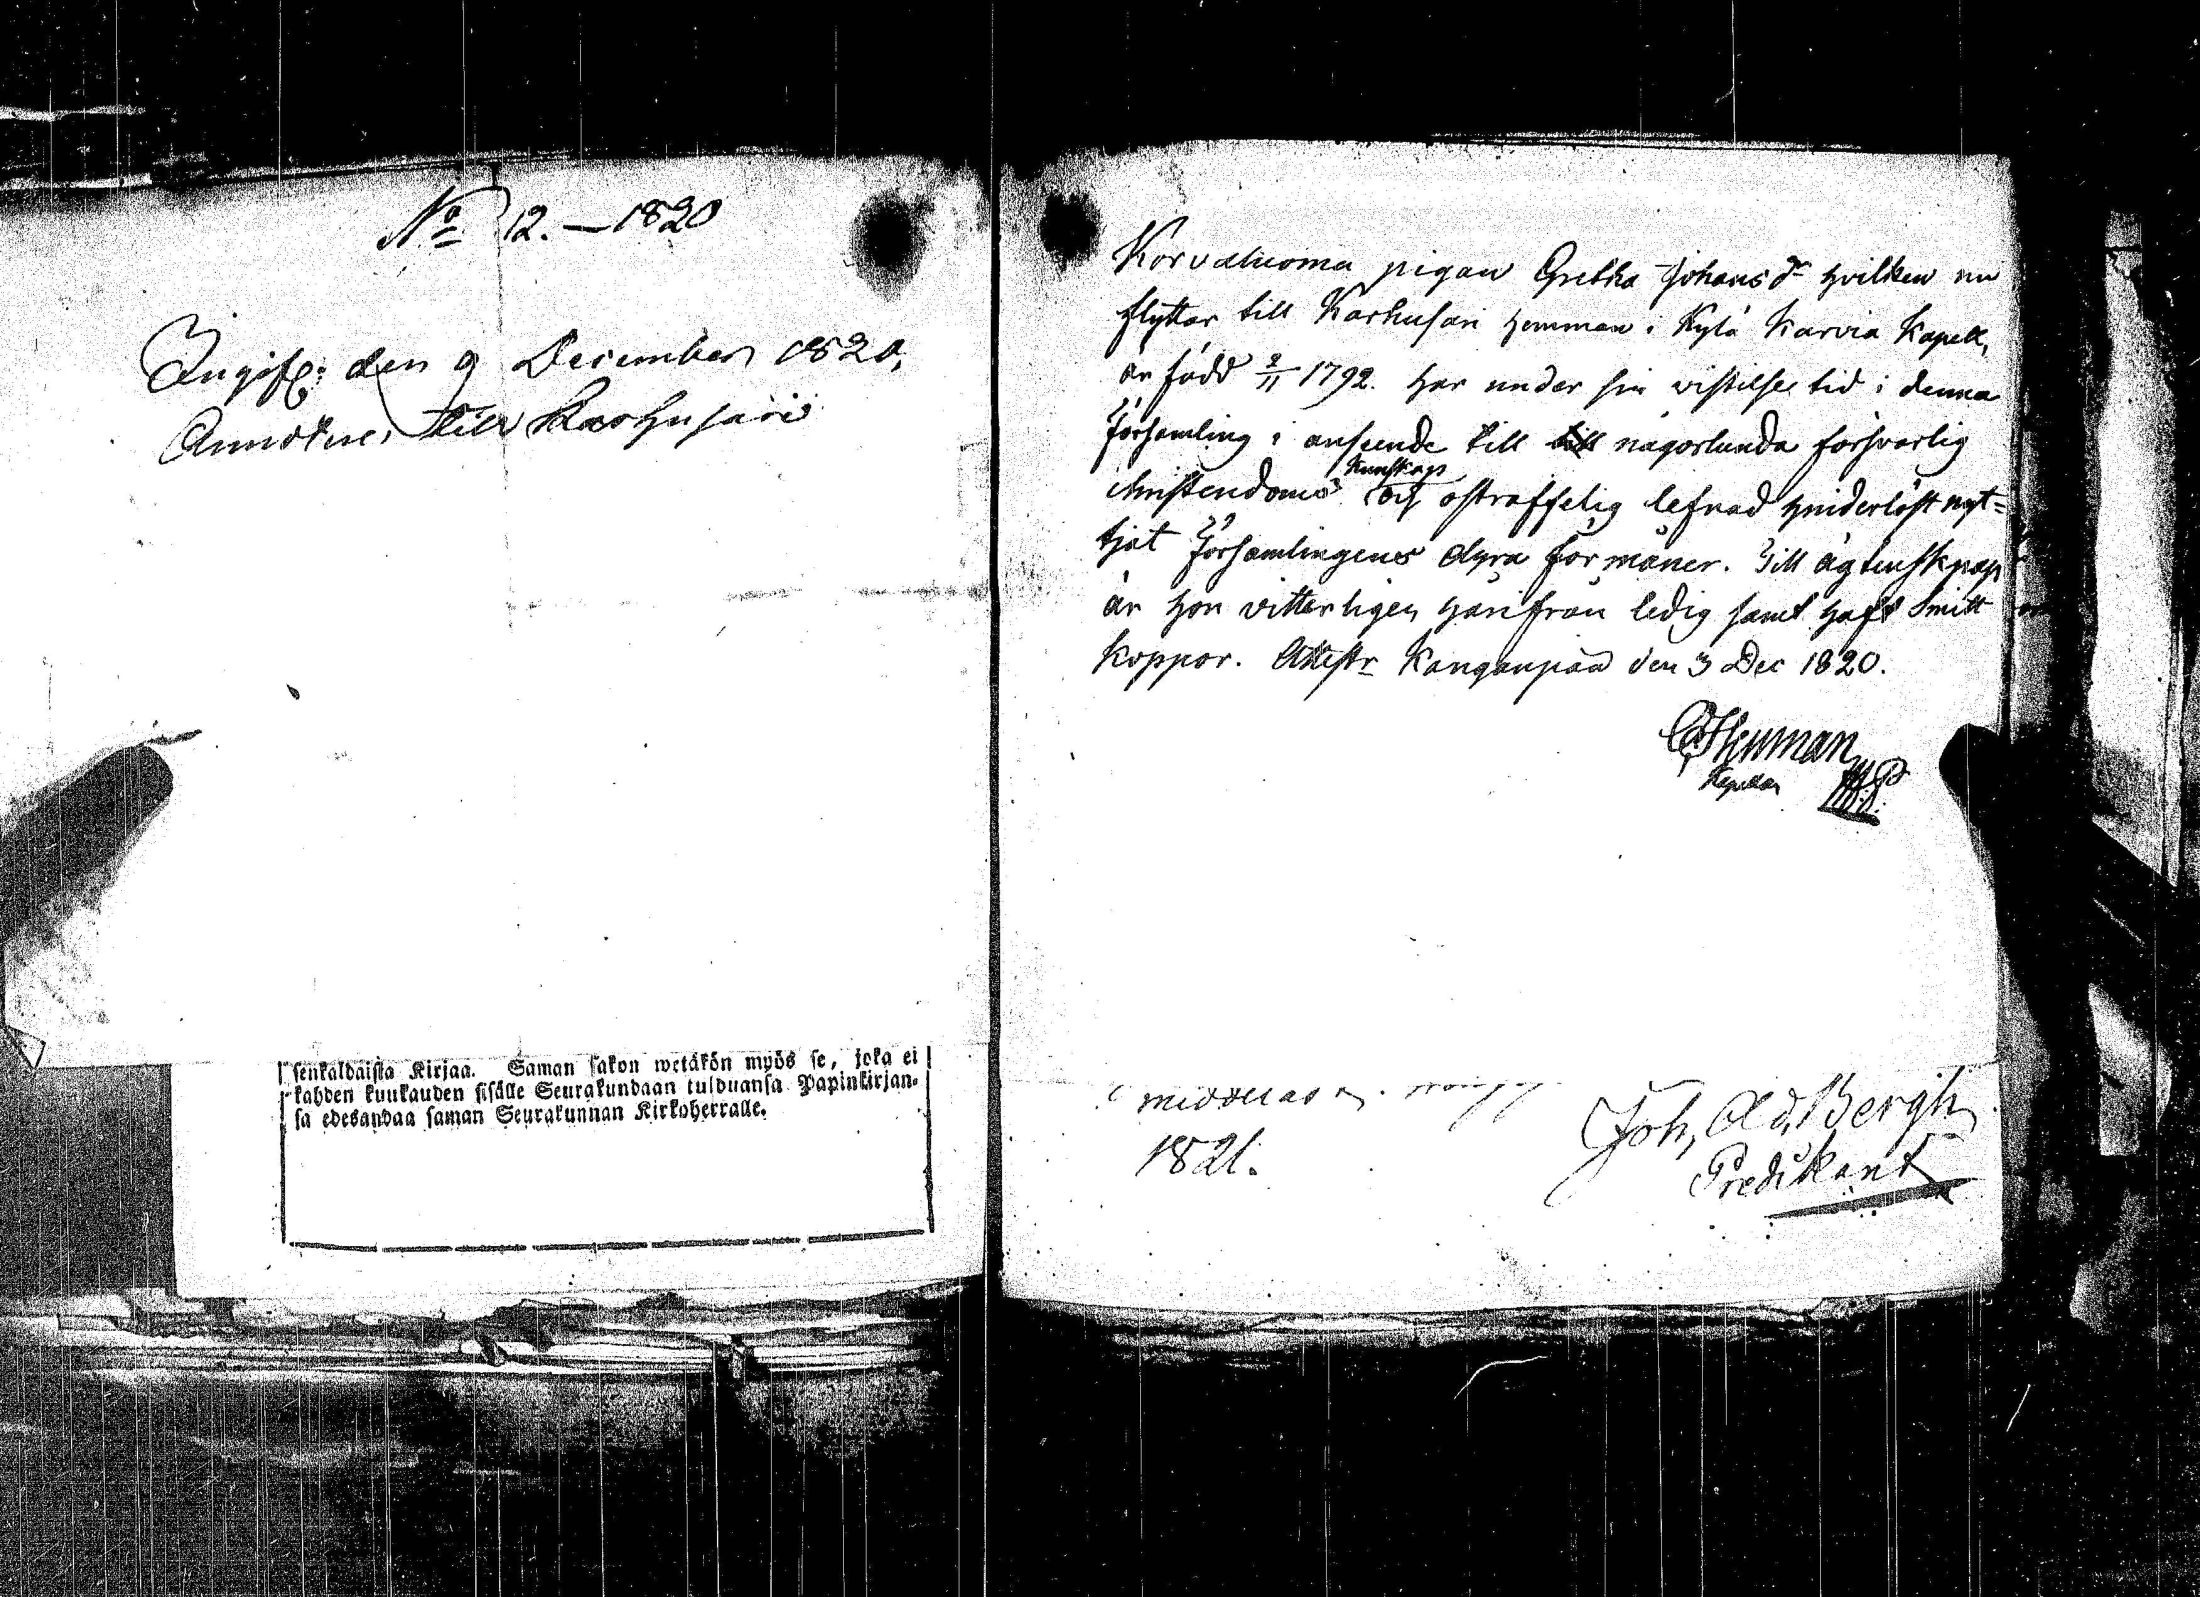 No 12. – 1820
Ingifv: den 9 December 1820,
till Karhusari
senkaldaista Kirjaa. Saman sakon wetäkön myös se, joka ei
kahden kuukauden sisälle Seurakundaan tulduansa Papinkirjan-
sa edesandaa saman Seurakunnan Kirkoherralle.
Korvaluoma pigan Gretha Johansdr hvilken nu
flyttar till Karhusari hemman i Kylä Karvia Kapell,
är född 2/11 1792. har under sin vistelse tid i denna
Församling i anseende till till någorlunda försvarlig
christendoms kunskap och ostraffelig lefnad hinderlöst nyt=
tjat Församlingens dyra förmåner. Till ägtenskap
är hon vitterligen härifrån ledig samt haft Smitt
koppor. Attestr Kanganpää den 3 Dec 1820.
Kapellan
1821.
Joh, Ad, Bergh
Predikant